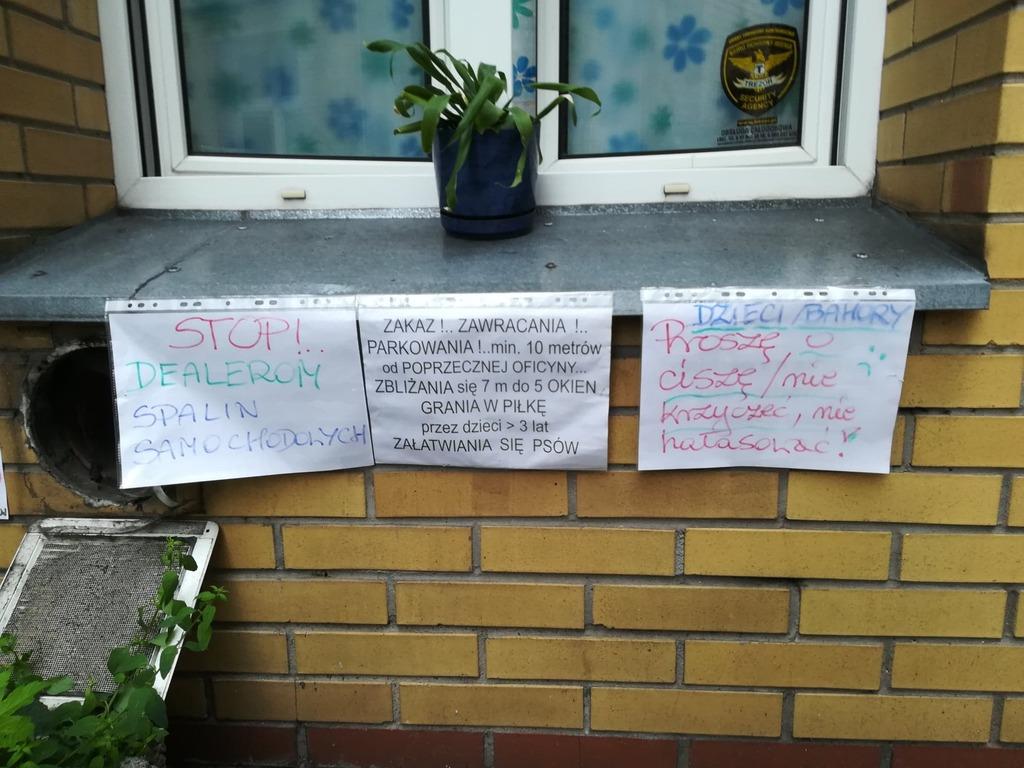 TREZOR
SECURITY
AGENCY
STOP!..
DEALEROM
SPALIN
SAMOCHODOWYCH
ZAKAZ !.. ZAWRACANIA !..
PARKOWANIA !..min. 10 metrów
od POPRZECZNEJ OFICYNY...
ZBLIŻANIA się 7 m do 5 OKIEN
GRANIA W PIŁKĘ
przez dzieci > 3 lat
ZAŁATWIANIA SIĘ PSÓW
DZIECI/BAHORY
Proszę o
ciszę/nie
krzyczeć, nie
hałasować!